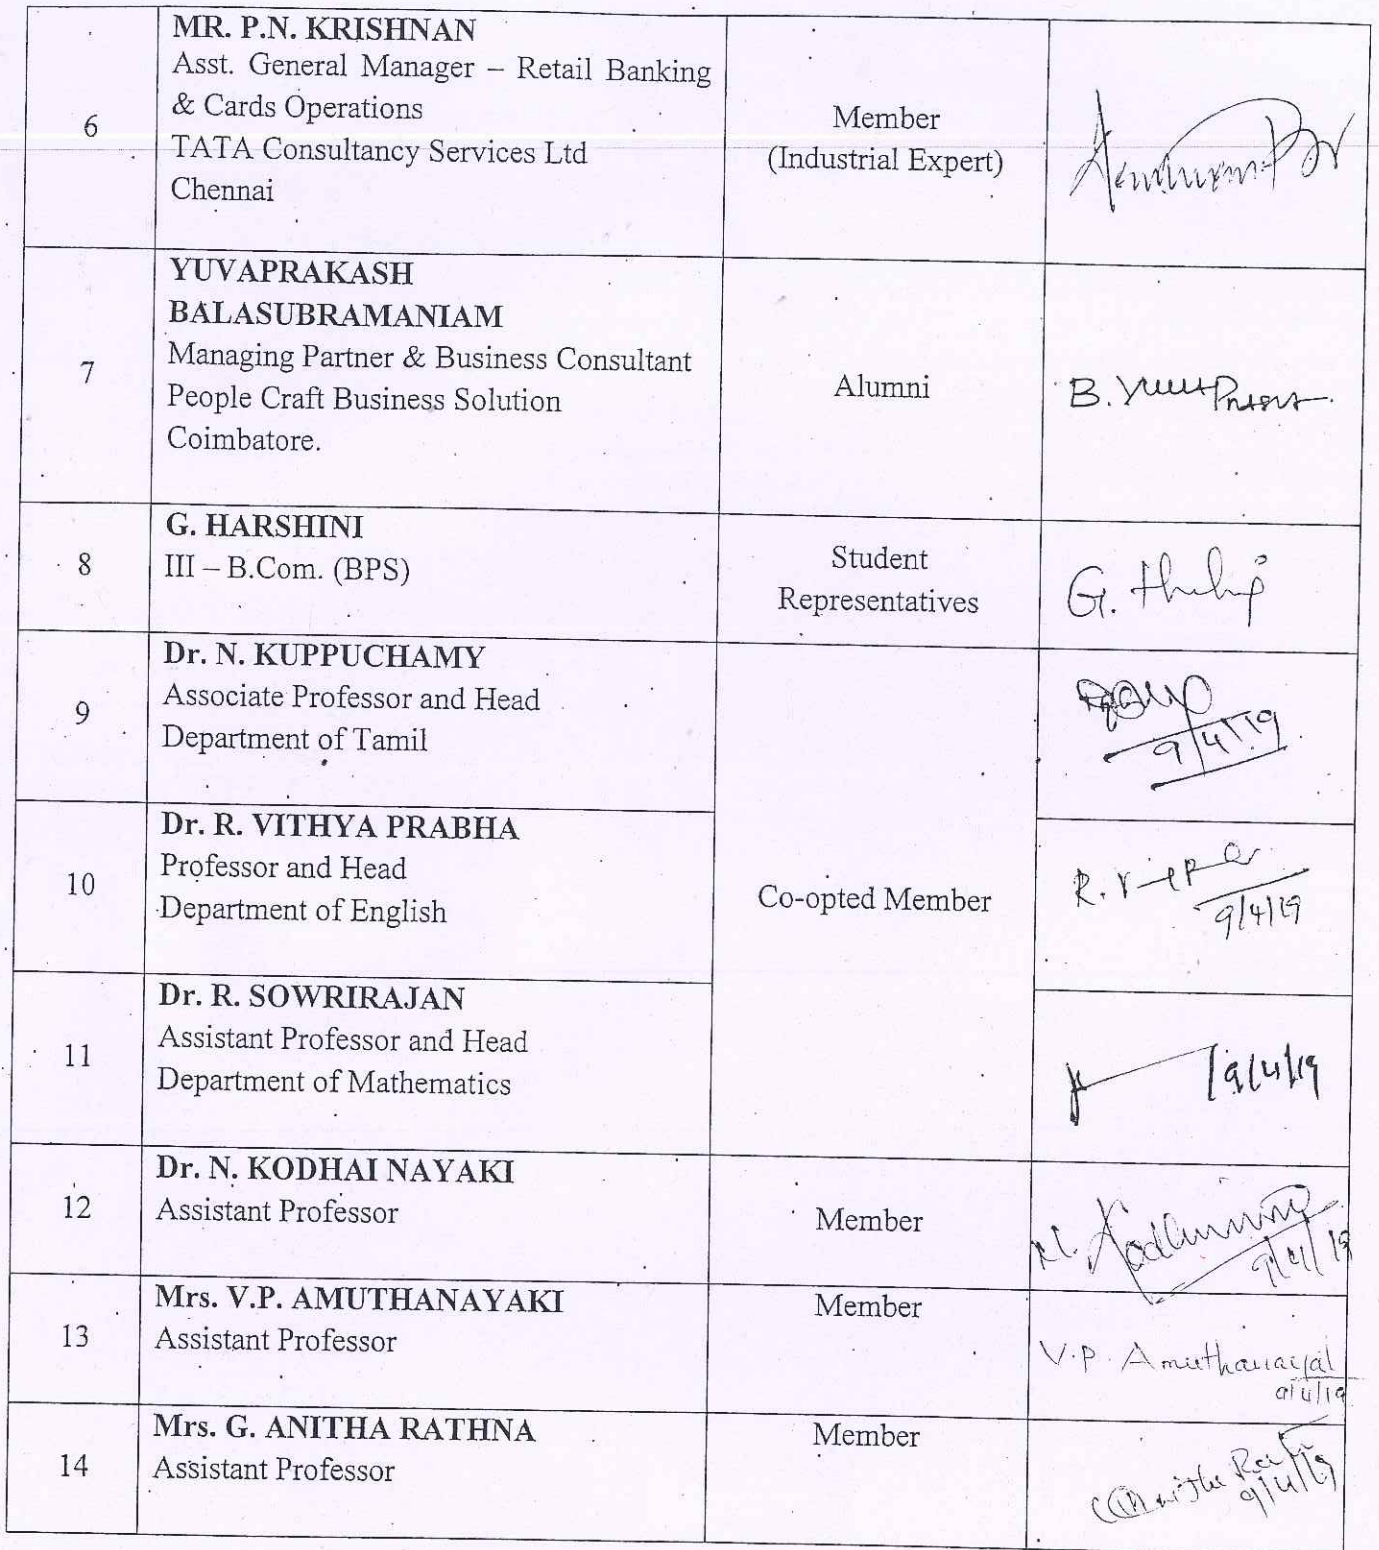 6
MR. P.N. KRISHNAN
Asst. General Manager – Retail Banking
& Cards Operations
TATA Consultancy Services Ltd
Chennai
Member
(Industrial Expert)
7
YUVAPRAKASH
BALASUBRAMANIAM
Managing Partner & Business Consultant
People Craft Business Solution
Coimbatore.
Alumni
B.
8
G. HARSHINI
III – B.Com. (BPS)
Student
Representatives
G.
9
Dr. N. KUPPUCHAMY
Associate Professor and Head
Department of Tamil
9/4/19
10
Dr. R. VITHYA PRABHA
Professor and Head
Department of English
Co-opted Member
R.
9/4/19
11
Dr. R. SOWRIRAJAN
Assistant Professor and Head
Department of Mathematics
9/4/19
12
Dr. N. KODHAI NAYAKI
Assistant Professor
Member
N.
9/4/19
13
Mrs. V.P. AMUTHANAYAKI
Assistant Professor
Member
V.P.
9/4/19
14
Mrs. G. ANITHA RATHNA
Assistant Professor
Member
9/4/19